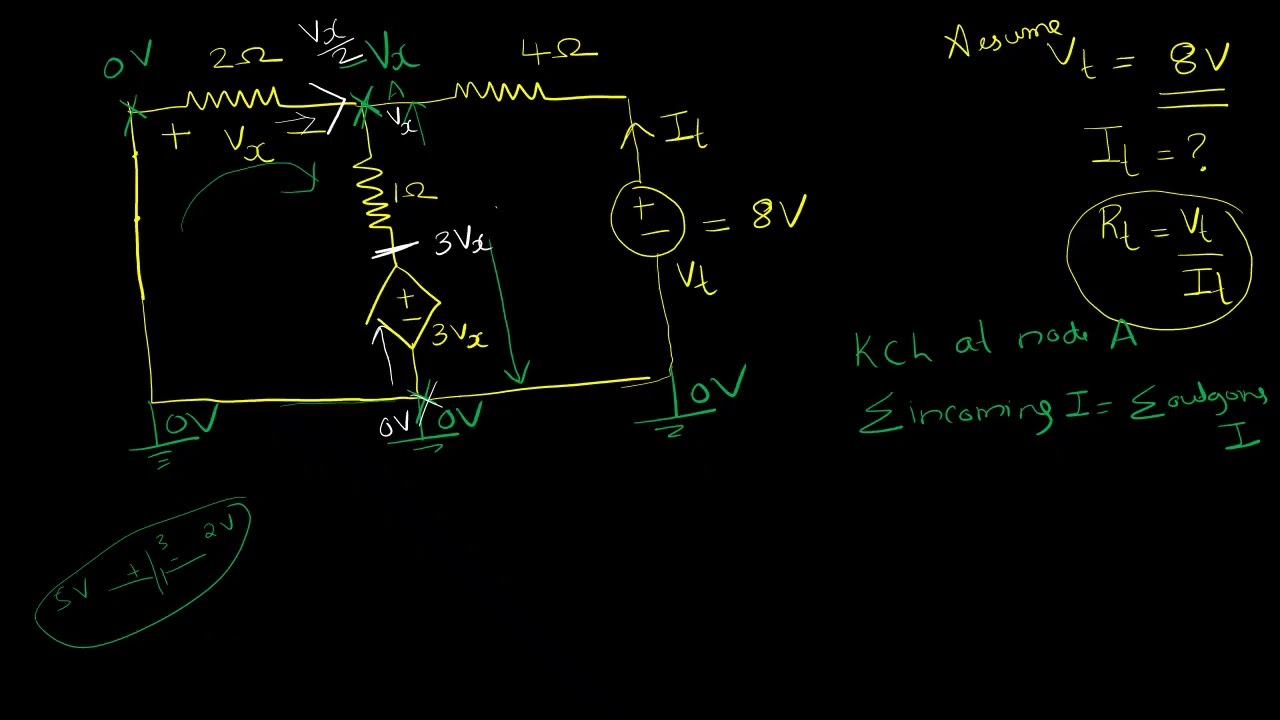 0V
2Ω
Vx/2
=Vx
4Ω
A
+ Vx −
Vx
It
1Ω
3Vx
+
−
3Vx
+
−
= 8V
Vt
0V
0V
0V
0V
Assume Vt = 8V
It = ?
Rt = Vt/It
KCL at node A
Σ incoming I = Σ outgoing I
5V + 3 − 2V